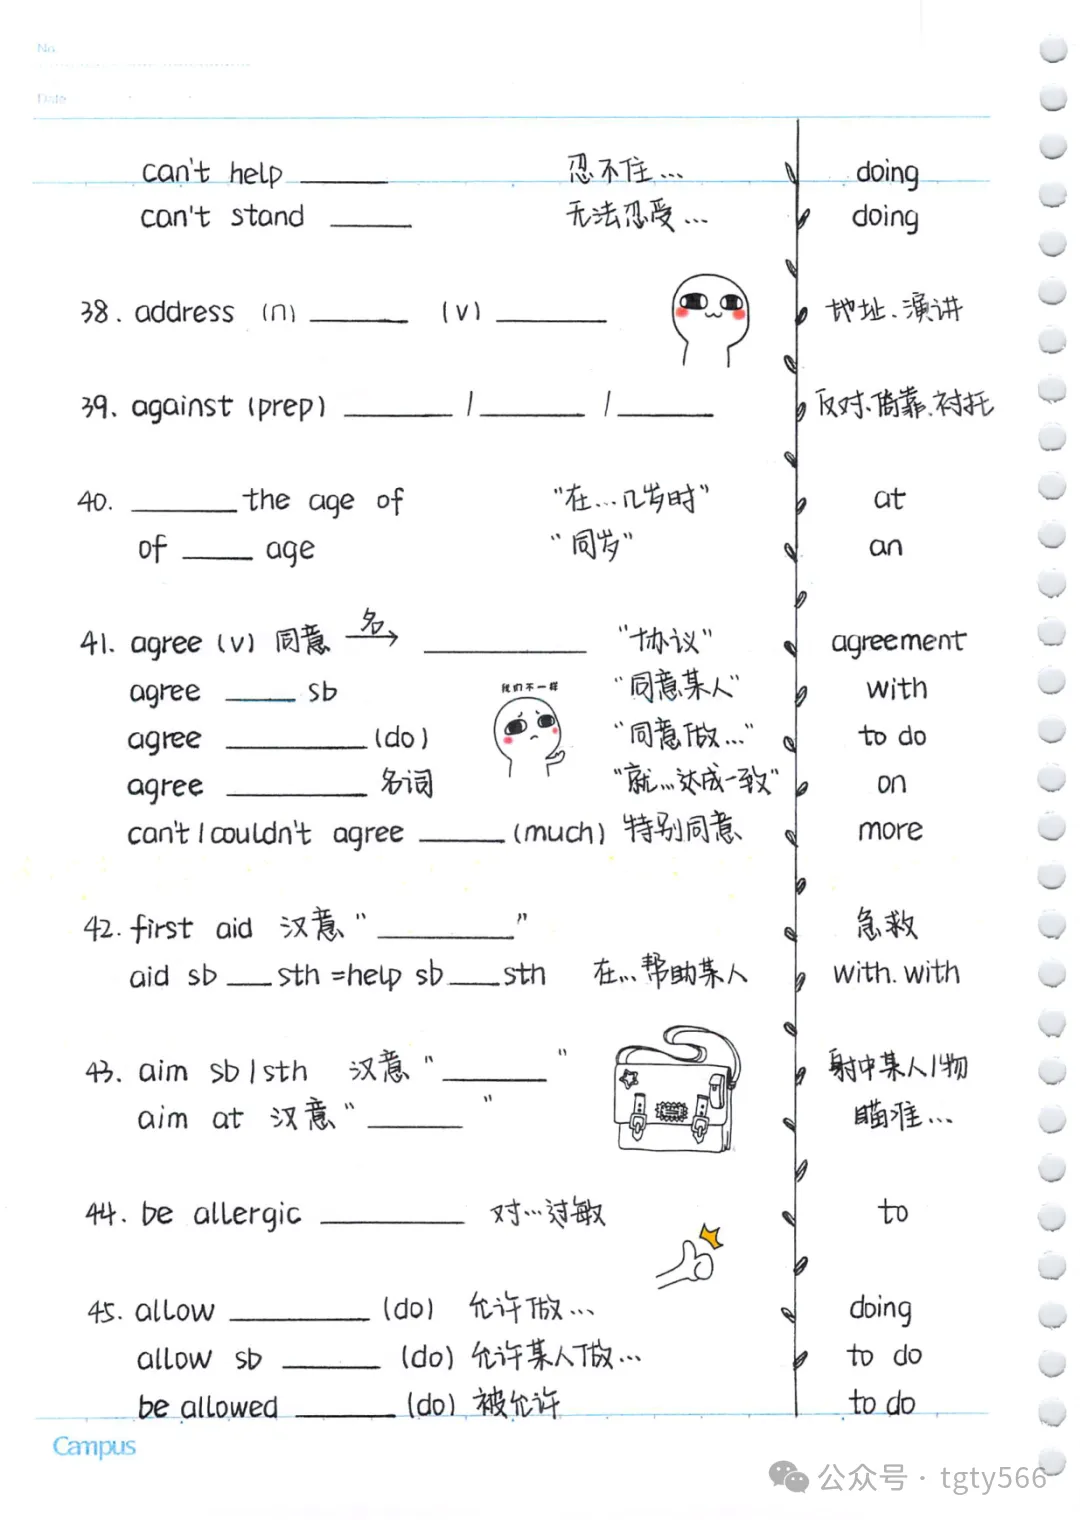 No.
Date
can't help ______ 忍不住... doing
can't stand ______ 无法忍受... doing
38. address (n) ______ (v) ______ 地址、演讲
39. against (prep) ______ / ______ / ______ 反对、倚靠、衬托
40. ______ the age of "在...几岁时" at
of ______ age "同岁" an
41. agree (v) 同意 名→ ______ "协议" agreement
我们不一样
agree ______ sb "同意某人" with
agree ______ (do) "同意做..." to do
agree ______ 名词 "就...达成一致" on
can't / couldn't agree ______ (much) 特别同意 more
42. first aid 汉意 "______" 急救
aid sb ___ sth = help sb ___ sth 在...帮助某人 with. with
43. aim sb / sth 汉意 "______" 射中某人/物
aim at 汉意 "______" 瞄准...
44. be allergic ______ 对...过敏 to
45. allow ______ (do) 允许做... doing
allow sb ______ (do) 允许某人做... to do
be allowed ______ (do) 被允许 to do
Campus
公众号 · tgty566